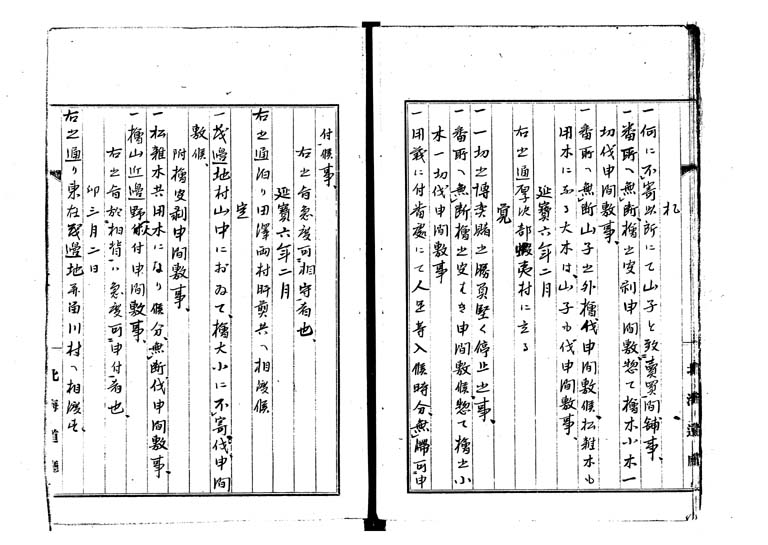 札
一何に不寄此所にて山子と致賣買間舗事、
一番所へ無断檜之皮剥申間敷惣て檜木小木一
切伐申間敷事、
一番所へ無断山子之外檜伐申間敷候、松雑木も
用木になる大木は、山子も伐申間敷事、
右之通厚沢部蝦夷村に立る
延寶六年二月
覚
一一切之博奕賭之勝負堅く停止之事、
一番所へ無断檜之皮はき申間敷候惣て檜之小
木一切伐申間敷事
一用義に付番處にて人足等入候時分無滞可申
付候事
右之旨急度可相守者也、
延寶六年二月
右之通泊り田澤両村肝煎共へ相渡候
定
一茂邊地村山中におゐて、檜大小に不寄伐申間
敷候、
附檜皮剥申間敷事、
一松雑木共用木になり候分、無断伐申間敷事、
一檜山近邊野火付申間敷事、
右之旨於相背ハ急度可申付者也、
卯三月二日
右之通り東在茂邊地并當川村へ相渡ス
北海道廳